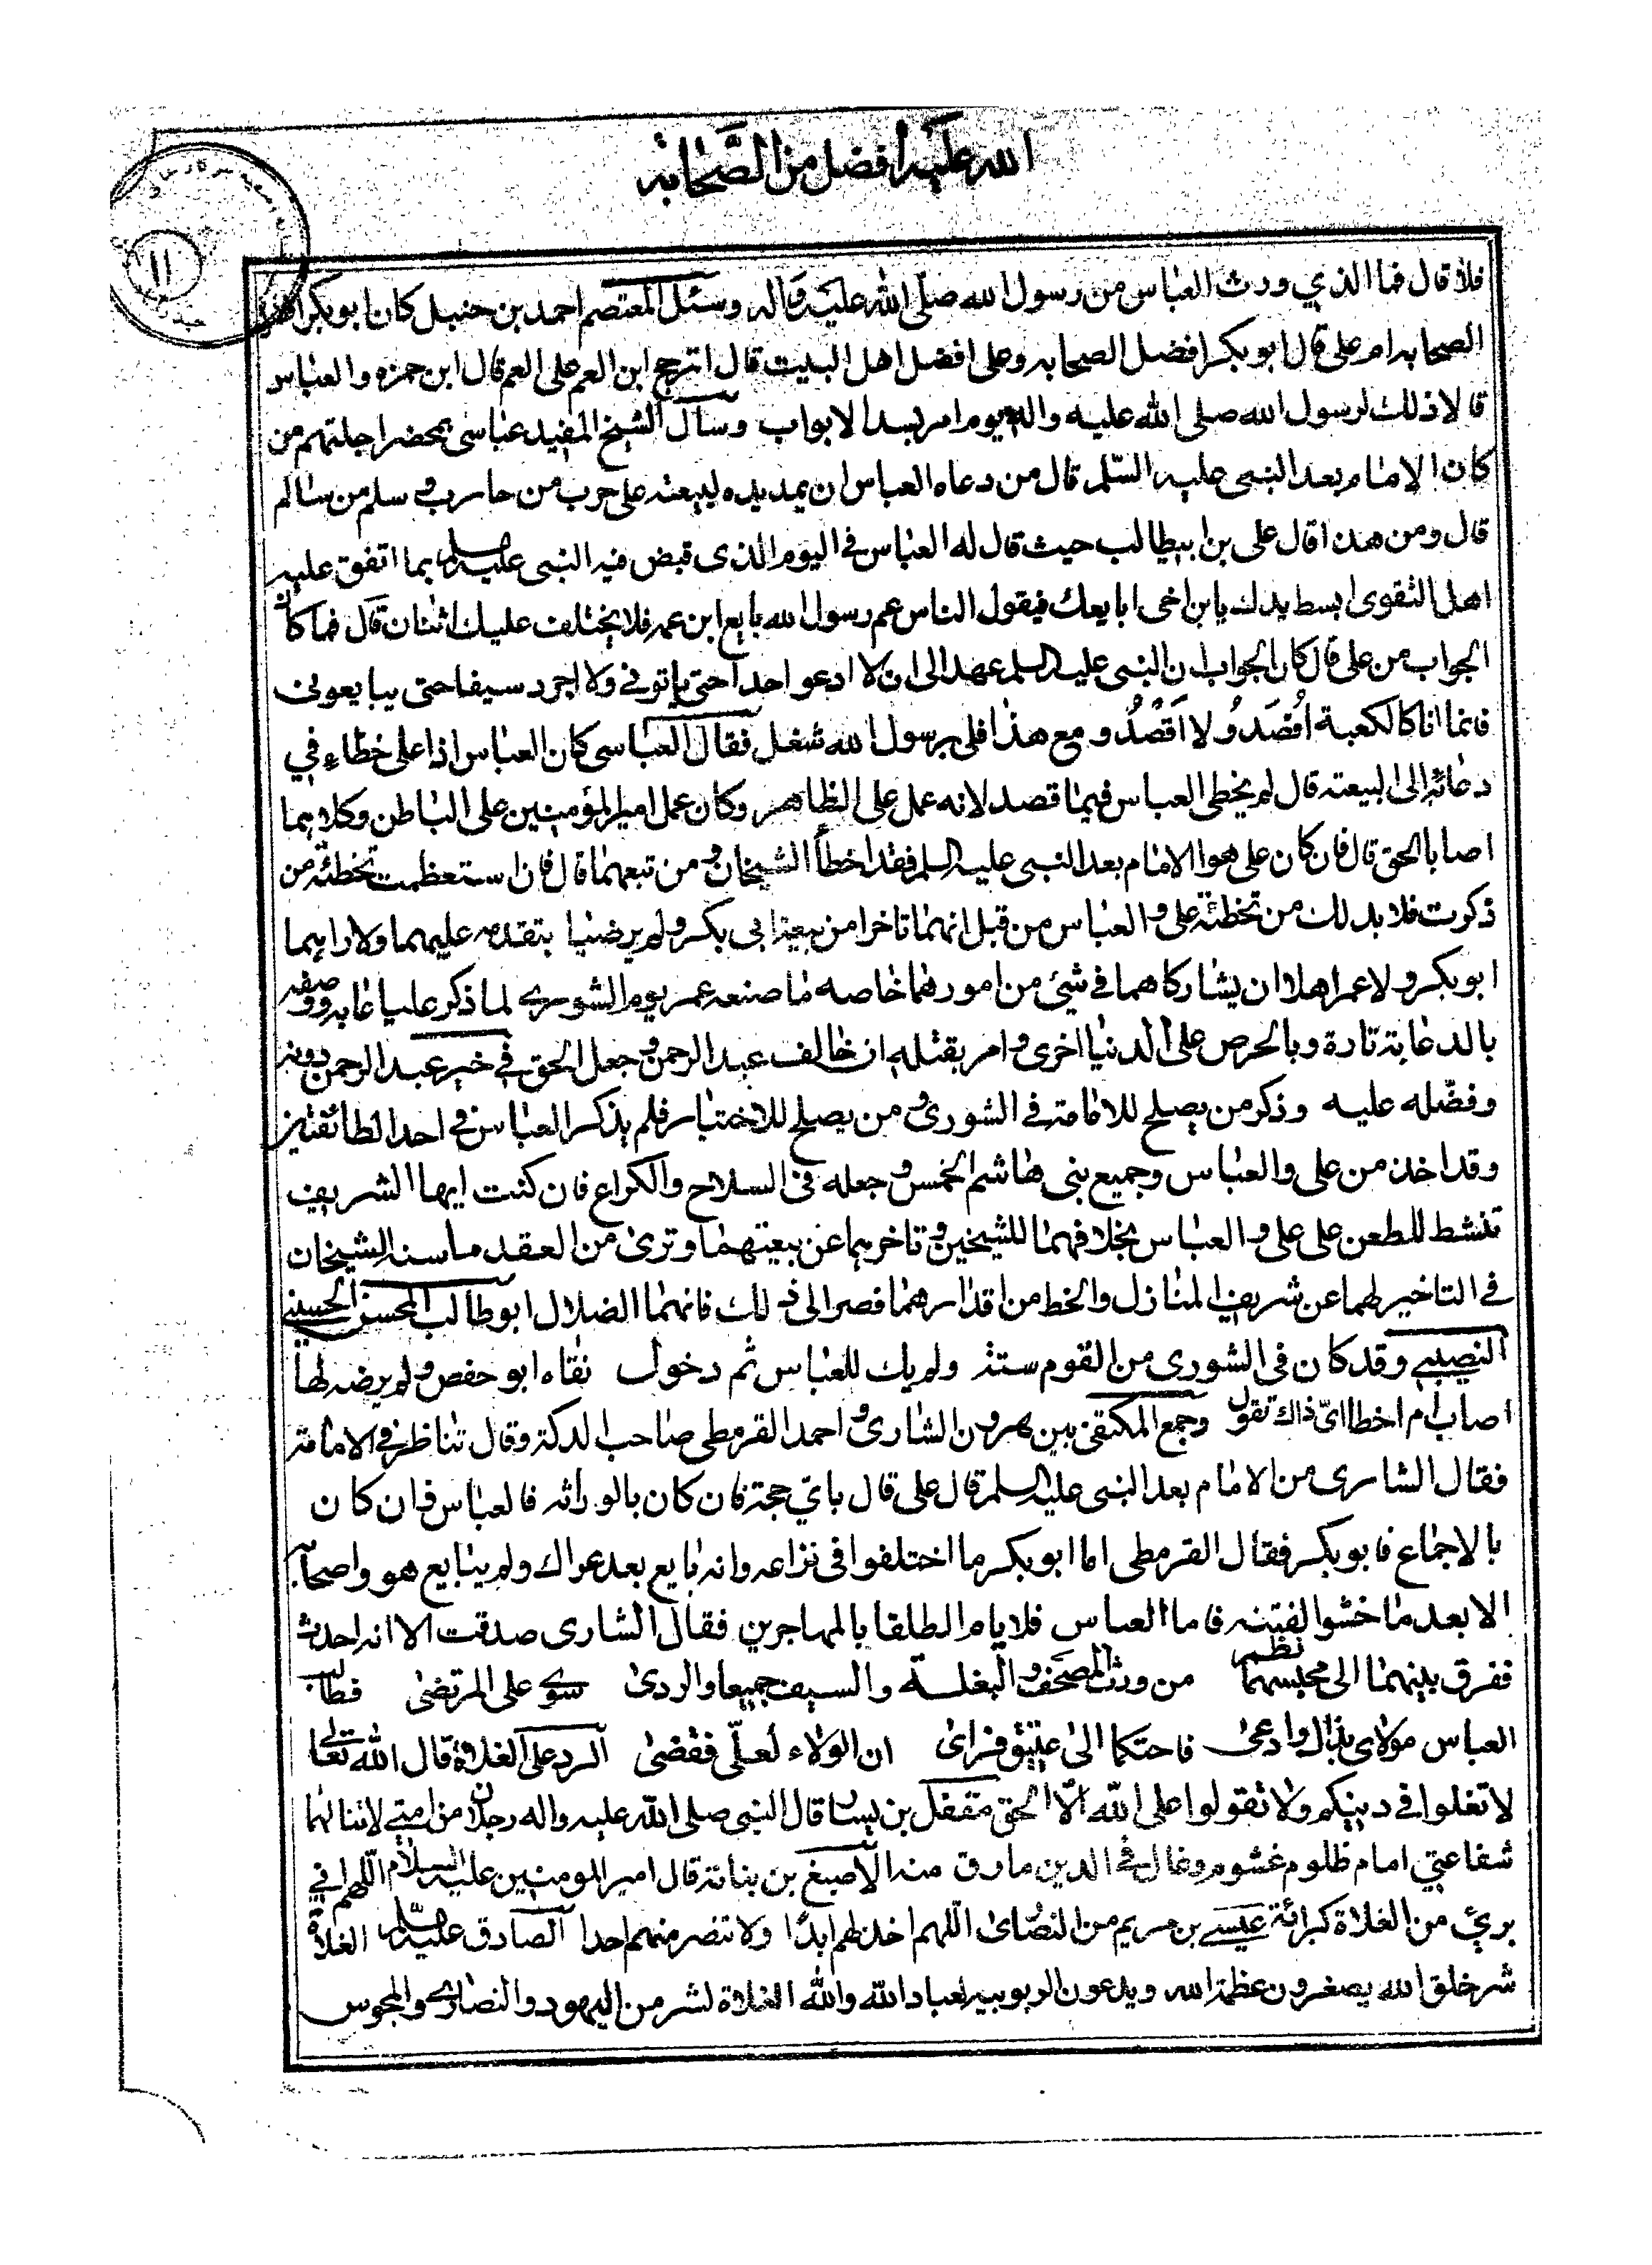 الله عليه افضل من الصحابه
١١
فلا قال فما الذي ورث العباس من رسول الله صلّى الله عليه وآله وسئل المعتصم احمد بن حنبل كان ابو بكر افضل
الصحابه ام علي قال ابو بكر افضل الصحابه وعلى افضل اهل البيت قال اترجح ابن العم على العم قال ابن حمزه والعباس
قالا ذلك لرسول الله صلى الله عليه واله يوم امر بسد الابواب وسأل الشيخ المفيد عباسى بمحضر اجلتهم من
كان الامام بعد النبى عليه السّلم قال من دعاه العباس ان يمد يده ليبيعته على حرب من حارب و سلم من سالم
قال ومن هذا قال على بن ابيطالب حيث قال له العباس فى اليوم الذى قبض فيه النبى عليه السلم بما اتفق عليه
اهل التقوى ابسط يدك يابن اخى ابايعك فيقول الناس عم رسول الله بايع ابن عمه فلا يختلف عليك اثنان قال فما كان
الجواب من على قال كان الجواب ان النبى عليه السلم عهد الى ان لا ادعو احدا حتى ياتونى ولا اجرد سيفا حتى يبايعونى
فانما انا كالكعبة اُقصَدُ ولا اَقصُدُ و مع هذا فلى برسول الله شغل فقال العباسى كان العباس اذا على خطاءٍ في
دعائه الى البيعته قال لم يخطى العباس فيما قصد لانه عمل على الظاهر وكان عمل امير المؤمنين على الباطن وكلاهما
اصابا الحق قال فان كان على هو الامام بعد النبى عليه السلم فقد اخطأ الشيخان و من تبعهما قال فان استعظمت تخطئة من
ذكرت فلا بد لك من تخطئة على و العباس من قبل انهما تاخرا من بيعة ابى بكر ولم يرضيا بتقدمه عليهما ولا راهما
ابو بكر ولا عمر اهلا ان يشاركاهما فى شئ من امورهما خاصه ما صنعه عمر يوم الشورى لما ذكر عليا عابه ووصفه
بالدعابة تارة وبالحرص على الدنيا اخرى و امر بقتله ان خالف عبد الرحمن و جعل الحق فى خير عبد الرحمن دونه
وفضّله عليه وذكر من يصلح للامامة فى الشورى و من يصلح للاختيار فلم يذكر العباس فى احد الطائفتين
وقد اخذ من على والعباس وجميع بنى هاشم الخمس و جعله فى السلاح والكراع فان كنت ايها الشريف
تنشط للطعن على على و العباس بخلافهما للشيخين و تاخرهما عن بيعتهما وترى من العقد ما سنه الشيخان
فى التاخير لهما عن شريف المنازل والحط من اقدارهما فصر الى ذلك فانهما الضلال ابو طالب المحسن الحسينى
النصيبى وقد كان فى الشورى من القوم ستة ولم يك للعباس ثم دخول نفاه ابو حفص و لم يرضه لها
اصاب ام اخطا اىّ ذاك تقول وجمع المكتفى بين هرون الشارى و احمد القرمطى صاحب الدكة وقال تناظرا فى الامامة
فقال الشارى من الامام بعد النبى عليه السلم قال على قال باىّ حجة فان كان بالوراثه فالعباس فان كان
بالاجماع فابو بكر فقال القرمطى اما ابو بكر ما اختلفوا فى نزاعه وانه بايع بعد عراك ولم يبايع هو واصحابه
الا بعد ما خشوا الفتنه فاما العباس فلا يام الطلقا بالمهاجرين فقال الشارى صدقت الا انه احدث
ففرق بينهما الى محبسهما نظم من ورث المصحف و البغلة والسيف جميعا والردى سوى على المرتضى فطالب
العباس مولاى بذاك وادعى فاحتكما الى عتيق فراى ان الولاء لعلّى فقضى الرد على الغلاة قال الله تعالى
لا تغلوا فى دينكم ولا تقولوا على الله الّا الحق مقفل بن يسار قال النبى صلى الله عليه واله رجلان من امتى لا تنالهما
شفاعتى امام ظلوم غشوم وغال فى الدين مارق منه الاصبغ بن نباتة قال امير المومنين عليه السلام اللهم انى
برئ من الغلاة كبرائة عيسى بن مريم من النصارى اللهم اخذلهم ابدًا ولا تنصر منهم احدا الصادق عليه السلم الغلاة
شر خلق الله يصغرون عظمة الله ويدعون الربوبيه لعباد الله والله ان الغلاة لشر من اليهود والنصارى والمجوس